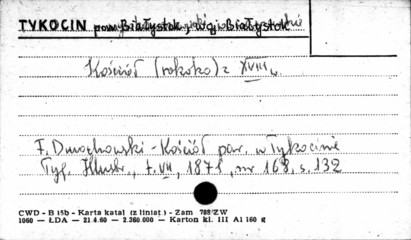 TYKOCIN pow. Białystok, woj. Białystok
Kościół (rokoko) z XVIII w.
F. Dmochowski - Kościół par. w Tykocinie
Tyg. Illustr., t. VII, 1871, nr 168, s. 132
CWD - B 15b - Karta katal (z liniat.) - Zam 788 ZW
1060 — ŁDA — 21.4.60 — 2.360.000 — Karton kl. III A1 160 g